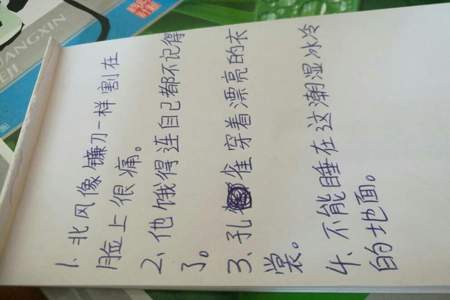 1、北风像镰刀一样割在
脸上很痛。
2、他饿得连自己都不记得
了。
3、孔雀穿着漂亮的衣
裳。
4、不能睡在这潮湿冰冷
的地面。
UANGXIN